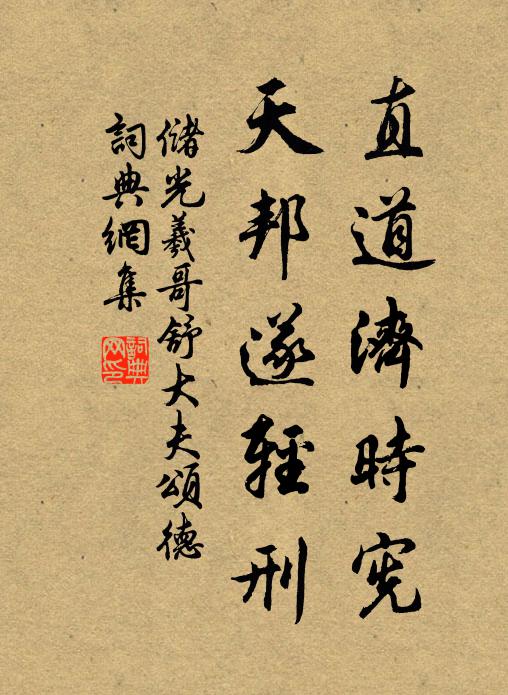 直道濟時憲
天邦遂輕刑
儲光羲哥舒大夫頌德
詞典網集
詞典网印